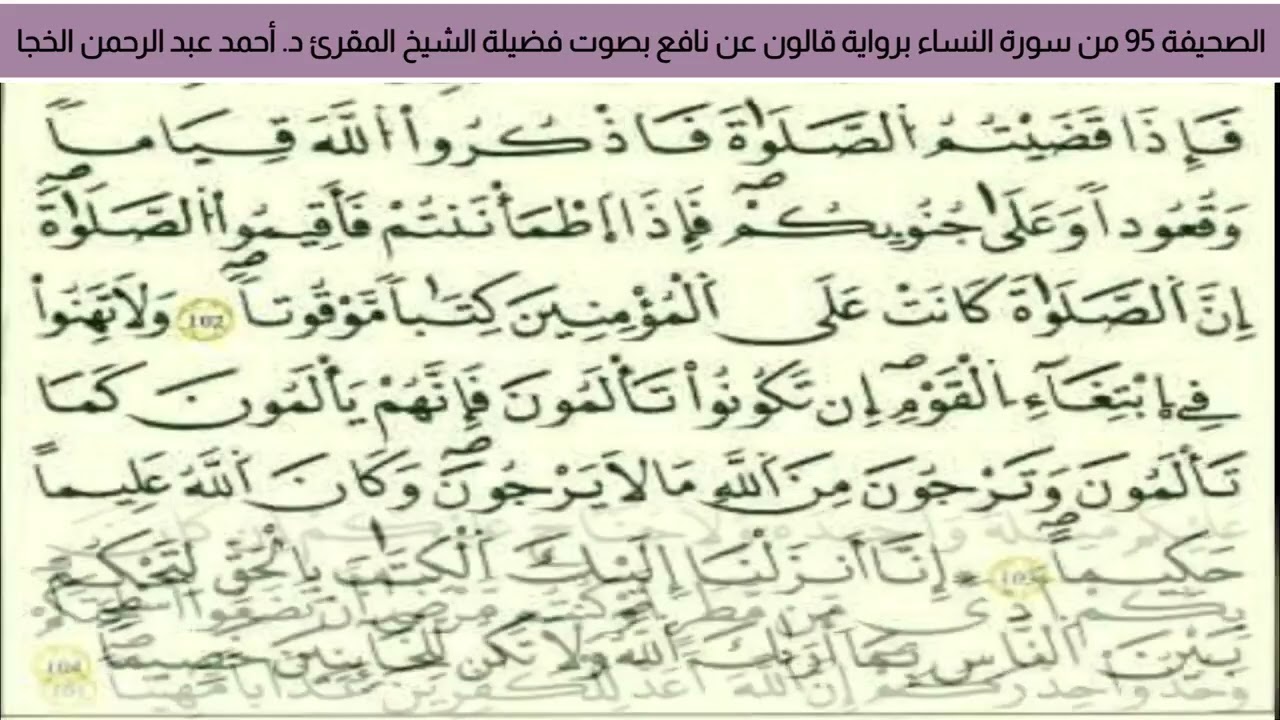 الصحيفة 95 من سورة النساء برواية قالون عن نافع بصوت فضيلة الشيخ المقرئ د. أحمد عبد الرحمن الخجا
فَإِذَا قَضَيْتُمُ اُ۬لصَّلَوٰةَ فَاذْكُرُواْ اُ۬للَّهَ قِيَٰماً
وَقُعُوداً وَعَلَىٰ جُنُوبِكُمْ فَإِذَا اَ۪طْمَأْنَنتُمْ فَأَقِيمُواْ اُ۬لصَّلَوٰةَ
إِنَّ اَ۬لصَّلَوٰةَ كَانَتْ عَلَى اَ۬لْمُؤْمِنِينَ كِتَٰباً مَّوْقُوتاً 102 وَلَا تَهِنُواْ
فِے اِ۪بْتِغَآءِ اِ۬لْقَوْمِ إِن تَكُونُواْ تَأْلَمُونَ فَإِنَّهُمْ يَأْلَمُونَ كَمَا
تَأْلَمُونَ وَتَرْجُونَ مِنَ اَ۬للَّهِ مَا لَا يَرْجُونَ وَكَانَ اَ۬للَّهُ عَلِيماً
حَكِيماً 103 إِنَّا أَنزَلْنَا إِلَيْكَ اَ۬لْكِتَٰبَ بِالْحَقِّ لِتَحْكُمَ
بَيْنَ اَ۬لنَّاسِ بِمَا أَرَىٰكَ اَ۬للَّهُ وَلَا تَكُن لِّلْخَآئِنِينَ خَصِيماً 104